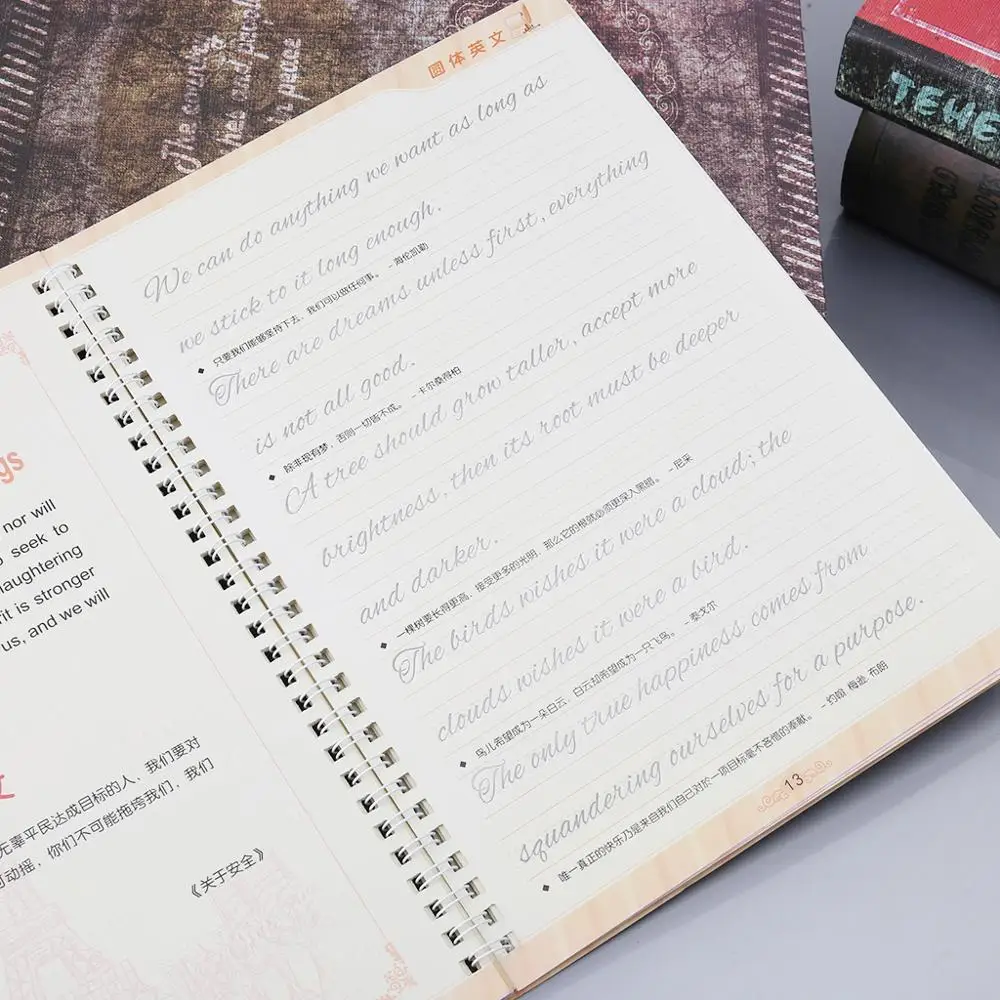 gs
nor will
seek to
laughtering
rit is stronger
us, and we will
文
无辜平民达成目标的人，我们要对
可动摇，你们不可能拖垮我们，我们
《关于安全》
圆体英文
We can do anything we want as long as
we stick to it long enough.
只要我们能够坚持下去，我们可以做任何事。 -海伦凯勒
There are dreams unless first, everything
is not all good.
除非现有梦，否则一切皆不成。 -卡尔桑得柏
A tree should grow taller, accept more
brightness, then its root must be deeper
and darker.
一棵树要长得更高，接受更多的光明，那么它的根就必须更深入黑暗。 -尼采
The birds wishes it were a cloud; the
clouds wishes it were a bird.
鸟儿希望成为一朵白云，白云却希望成为一只飞鸟。 -泰戈尔
The only true happiness comes from
squandering ourselves for a purpose.
唯一真正的快乐乃是来自我们自己对於一项目标毫不吝惜的奉献。 -约翰 梅逊 布朗
13